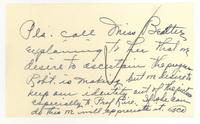 Pls. call Miss Beatley
explaining to her that m
desire to ascertain the progress
Robt. is making but m desire to
keep our identity out of the picture
especially to Prof Rice. If she can
do this m will appreciate it.